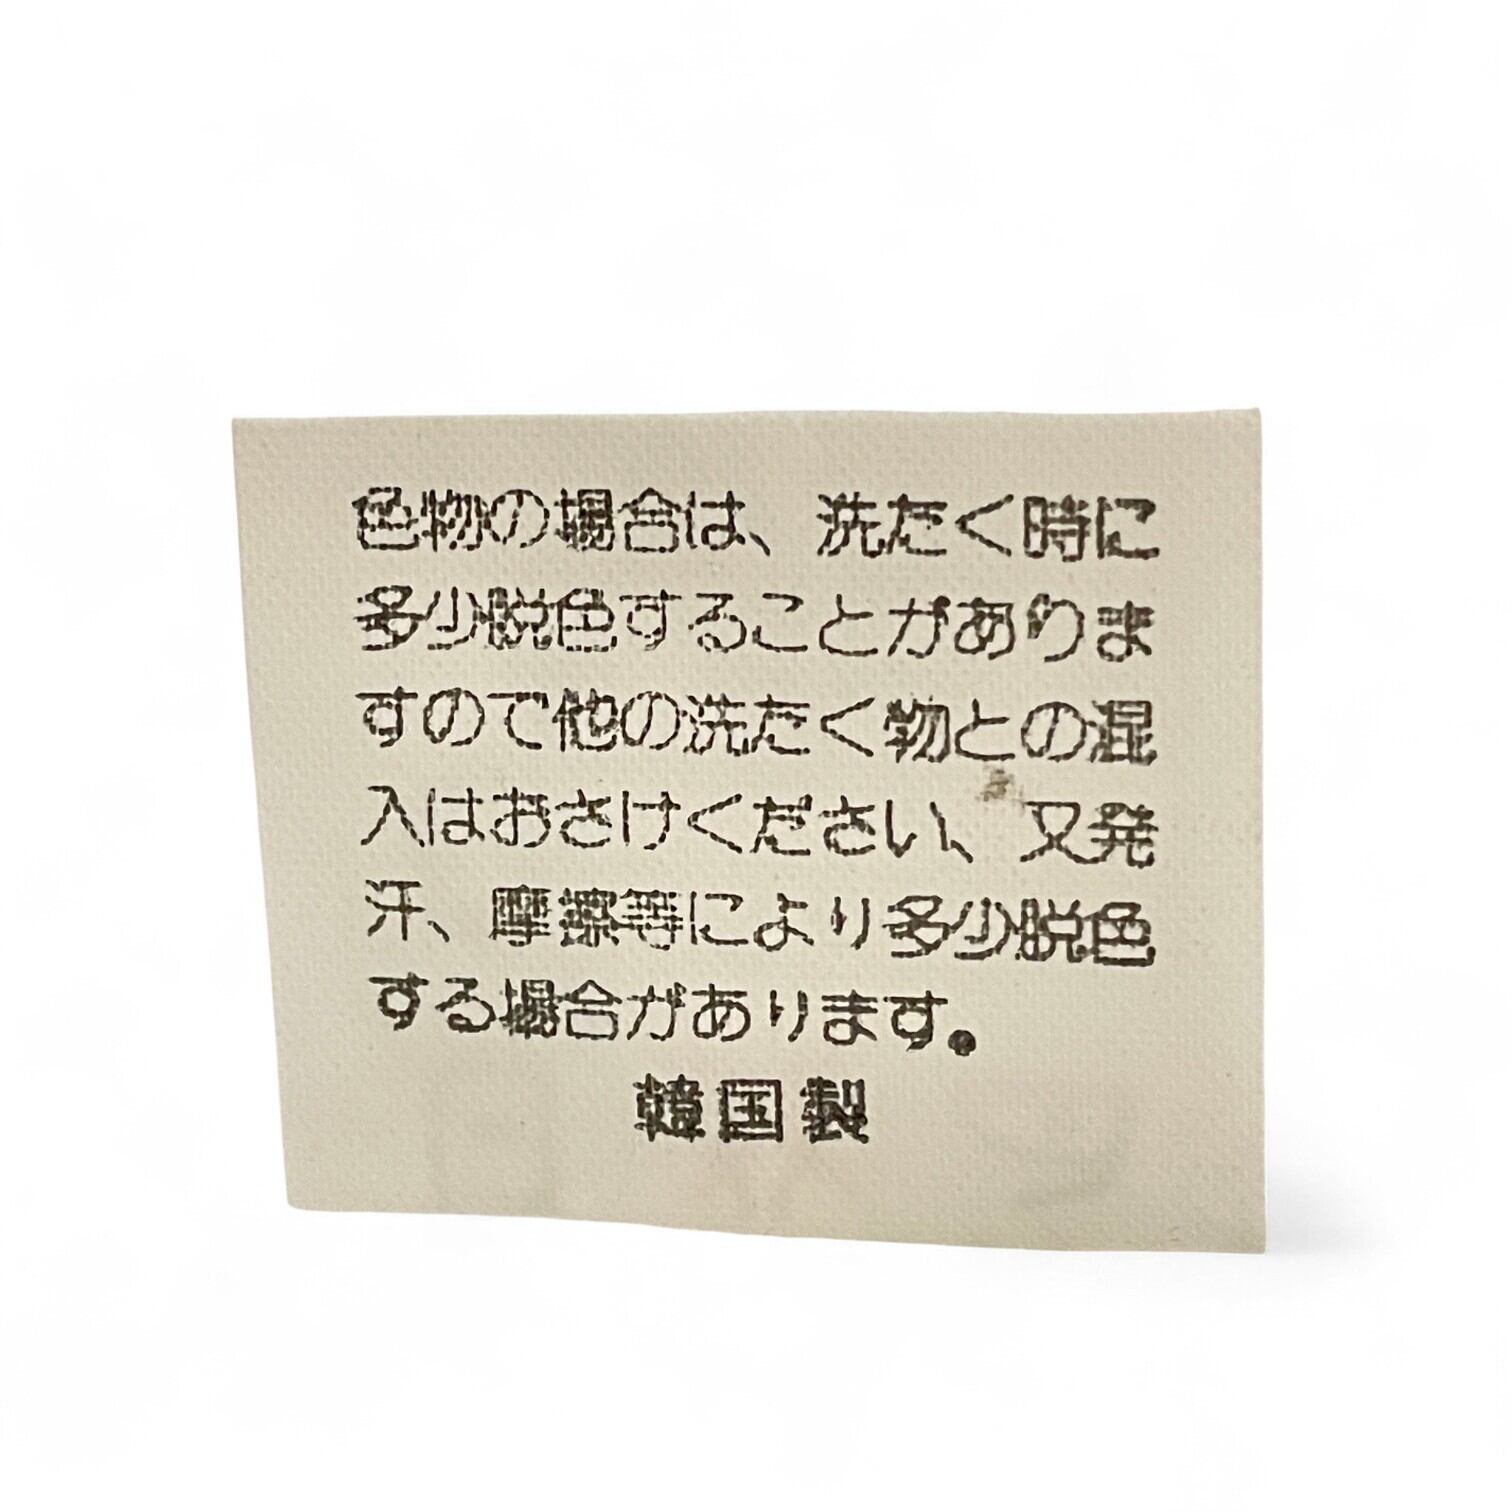 色物の場合は、洗たく時に
多少脱色することがありま
すので他の洗たく物との混
入はおさけください、又発
汗、摩擦等により多少脱色
する場合があります。
韓国製